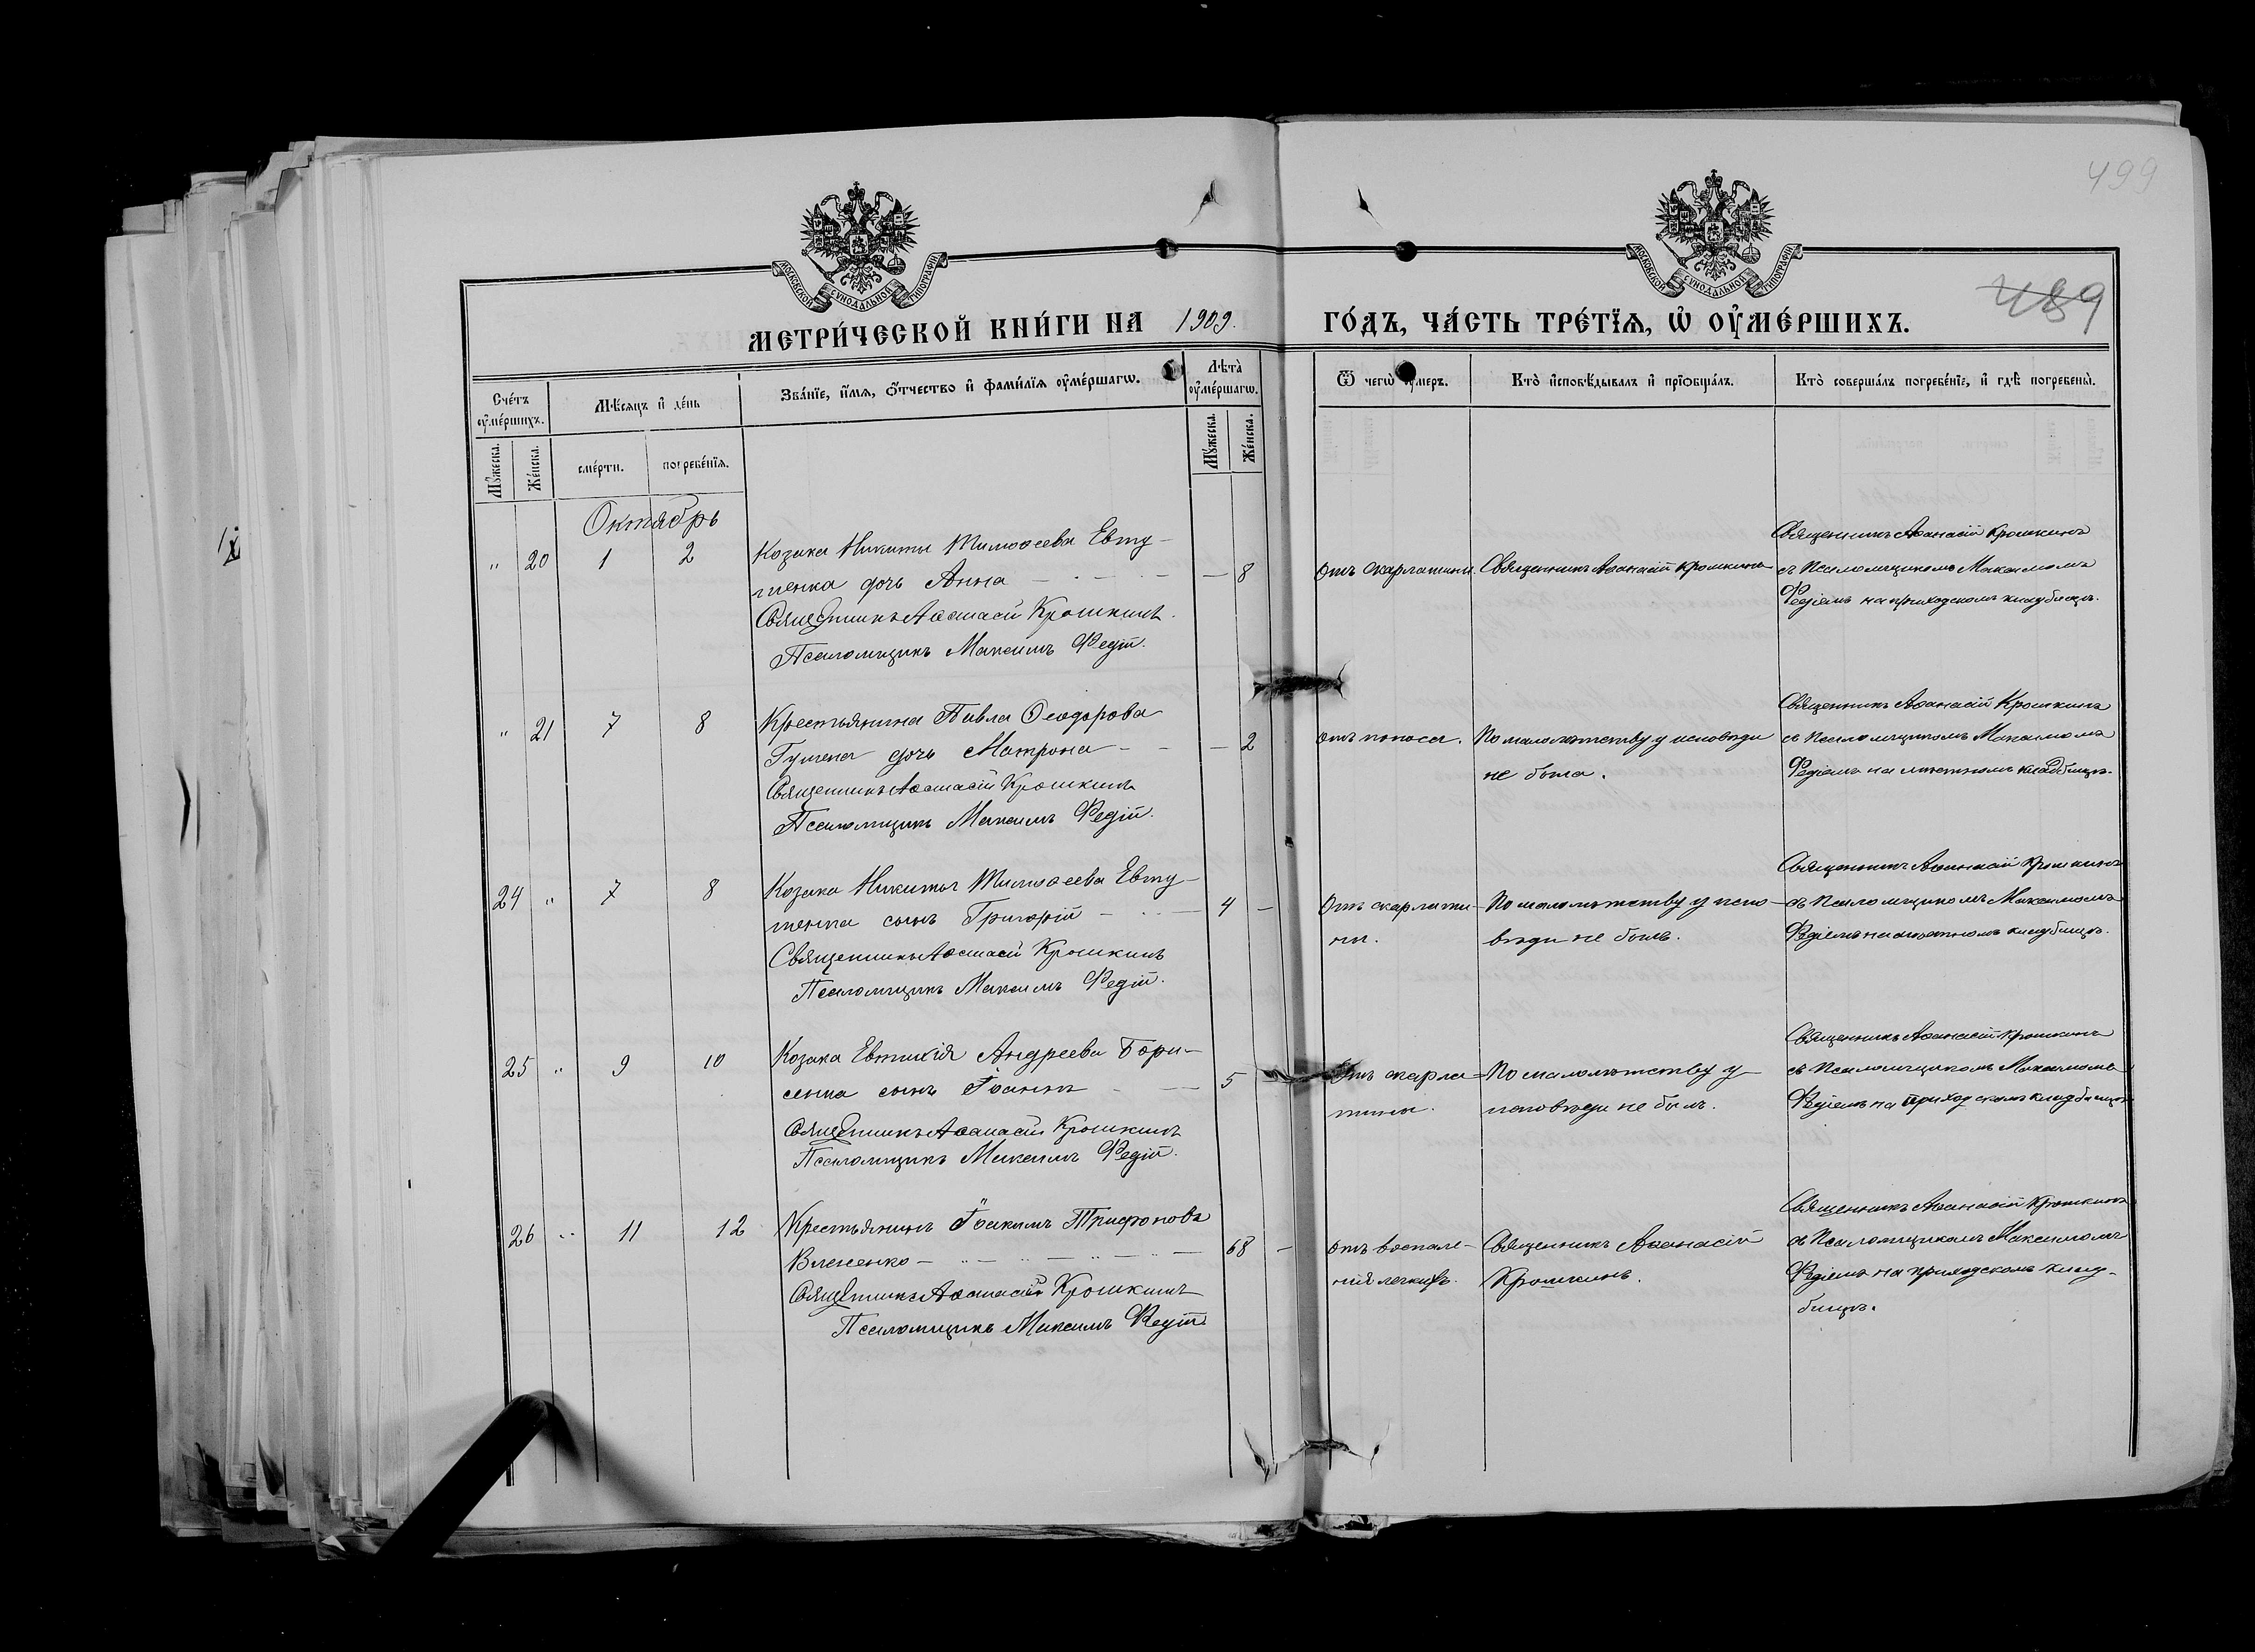 499
МОСКОВСКОЙ СѴНОДАЛЬНОЙ ТИПОГРАФІИ
МОСКОВСКОЙ СѴНОДАЛЬНОЙ ТИПОГРАФІИ
489
МЕТРИ́ЧЕСКОЙ КНИ́ГИ НА 1909. ГО́ДЪ, ЧА́СТЬ ТРЕ́ТЇѦ, Ѡ҆ ОУ҆МЕ́РШИХЪ.
Сче́тъ оу҆ме́ршихъ.
Мѣ́сяцъ и҆ де́нь
Зва́нїе, и҆́мѧ, ѻ҆́тчество и҆ фами́лїѧ оу҆ме́ршагѡ.
Лѣта̀ оу҆ме́ршагѡ.
Ѿ чегѡ̀ оу҆́меръ.
Кто̀ и҆сповѣ́дывалъ и҆ прїѡбща́лъ.
Кто̀ соверша́лъ погребе́нїе, и҆ гдѣ̀ погребены̀.
Мꙋ́жеска.
Же́нска.
сме́рти.
погребе́нїѧ.
Мꙋ́жеска.
Же́нска.
Октябрь
" 20 1 2 Козака Никиты Тимоѳеева Евту-
шенка дочь Анна
Священникъ Аѳанасій Крошкинъ.
Псаломщикъ Максимъ Федій.
— 8
Отъ скарлатины.
Священникъ Аѳанасій Крошкинъ
Священникъ Аѳанасій Крошкинъ
съ Псаломщикомъ Максимомъ
Федіемъ на приходскомъ кладбищѣ.
" 21 7 8 Крестьянина Павла Ѳеодорова
дочь Матрона
Священникъ Аѳанасій Крошкинъ
Псаломщикъ Максимъ Федій.
— 2
Отъ поноса.
По малолѣтству у исповѣди
не была.
Священникъ Аѳанасій Крошкинъ
съ Псаломщикомъ Максимомъ
Федіемъ на мѣстномъ кладбищѣ.
24 " 7 8 Козака Никиты Тимоѳеева Евту-
шенка сынъ Григорій
Священникъ Аѳанасій Крошкинъ
Псаломщикъ Максимъ Федій.
4 —
Отъ скарлати-
ны.
По малолѣтству у испо-
вѣди не былъ.
Священникъ Аѳанасій Крошкинъ
съ Псаломщикомъ Максимомъ
Федіемъ на мѣстномъ кладбищѣ.
25 " 9 10 Козака Евтихія Андреева Бори-
сенка сынъ Іоаннъ
Священникъ Аѳанасій Крошкинъ
Псаломщикъ Максимъ Федій.
5 —
Отъ скарла-
тины.
По малолѣтству у
исповѣди не былъ.
Священникъ Аѳанасій Крошкинъ
съ Псаломщикомъ Максимомъ
Федіемъ на приходскомъ кладбищѣ
26 " 11 12 Крестьянинъ Іоакимъ Трифоновъ
Священникъ Аѳанасій Крошкинъ
Псаломщикъ Максимъ Федій.
68 —
Отъ воспале-
нія легкихъ.
Священникъ Аѳанасій
Крошкинъ.
Священникъ Аѳанасій Крошкинъ
съ Псаломщикомъ Максимомъ
Федіемъ на приходскомъ клад-
бищѣ.